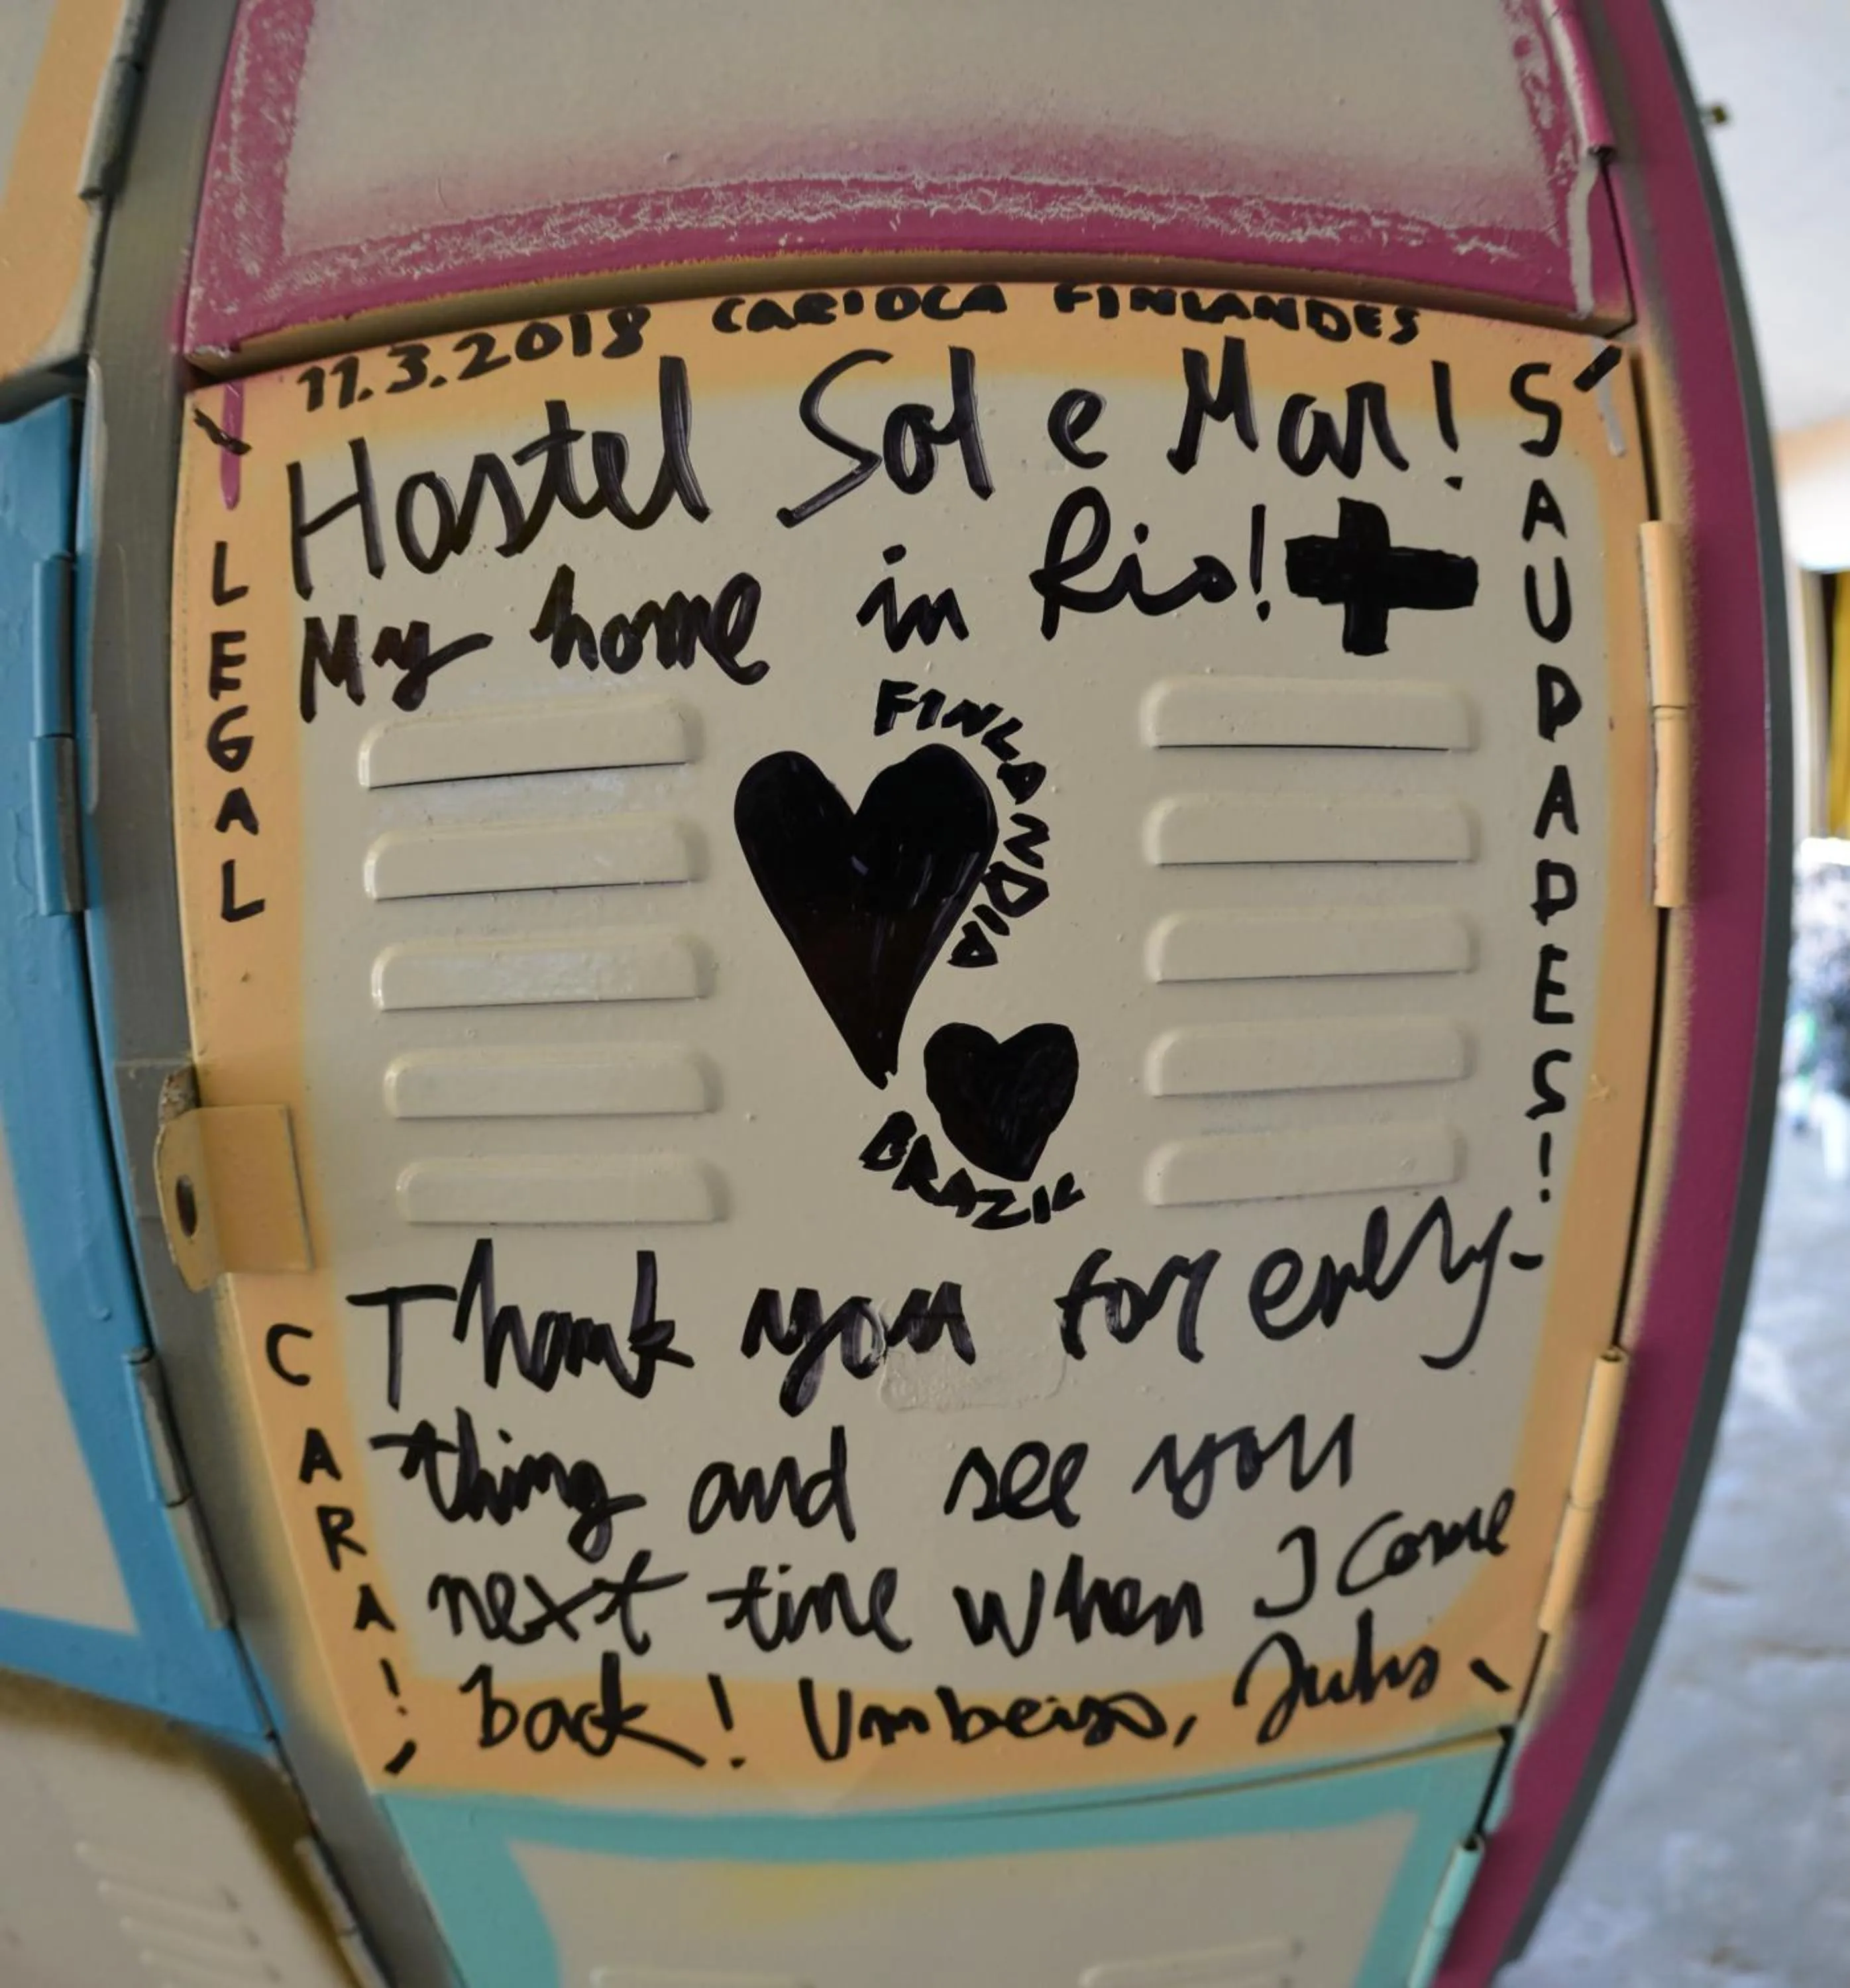 11.3.2018 CARIOCA FINLANDES
Hostel Sol e Mar!
My home in Rio!
LEGAL
CARA!
SAUDADES!
FINLANDIA
BRAZIL
Thank you for every-
thing and see you
next time when I come
back!